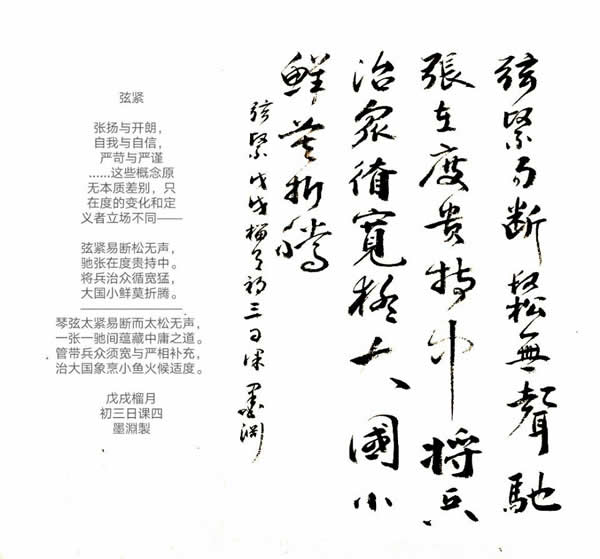 弦緊易断鬆無聲馳
張在度贵持中将兵
治衆循寬猛大國小
鮮莫折騰
弦緊戊戌榴月初三日课墨渊
弦紧
张扬与开朗，
自我与自信，
严苛与严谨
......这些概念原
无本质差别，只
在度的变化和定
义者立场不同——
弦紧易断松无声，
驰张在度贵持中。
将兵治众循宽猛，
大国小鲜莫折腾。
琴弦太紧易断而太松无声，
一张一驰间蕴藏中庸之道。
管带兵众须宽与严相补充，
治大国象烹小鱼火候适度。
戊戌榴月
初三日课四
墨淵製